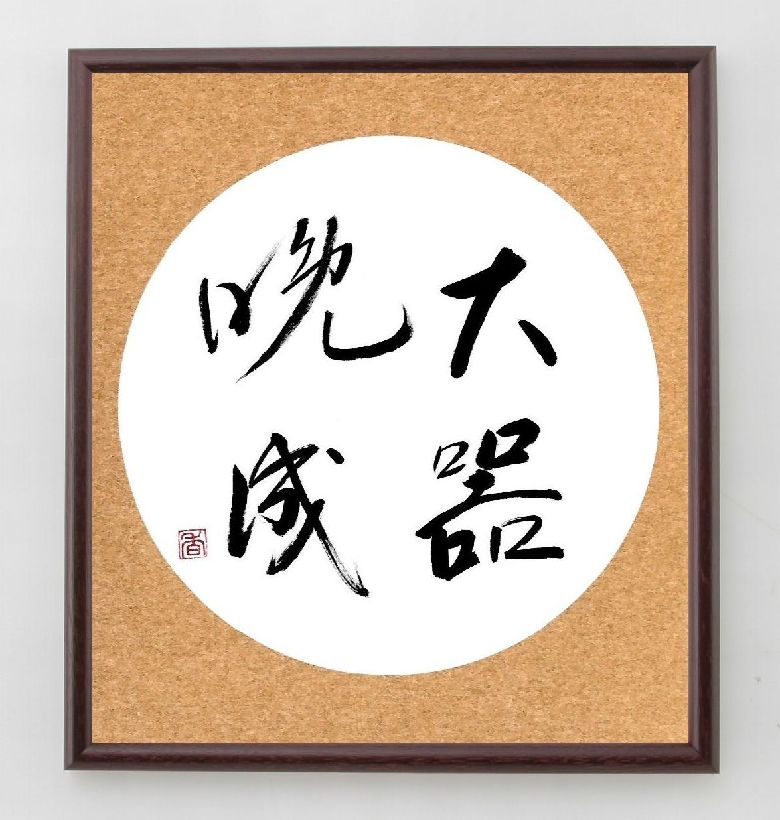 大器
晩成
香